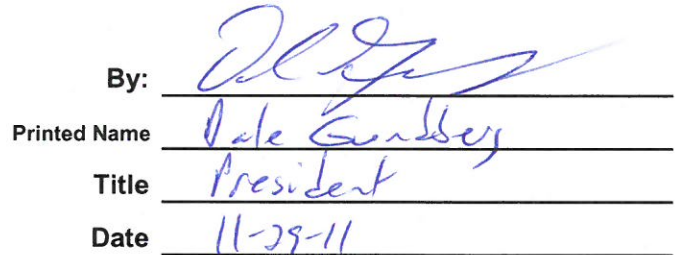 By:
Printed Name Dale Gundberg
Title President
Date 11-29-11